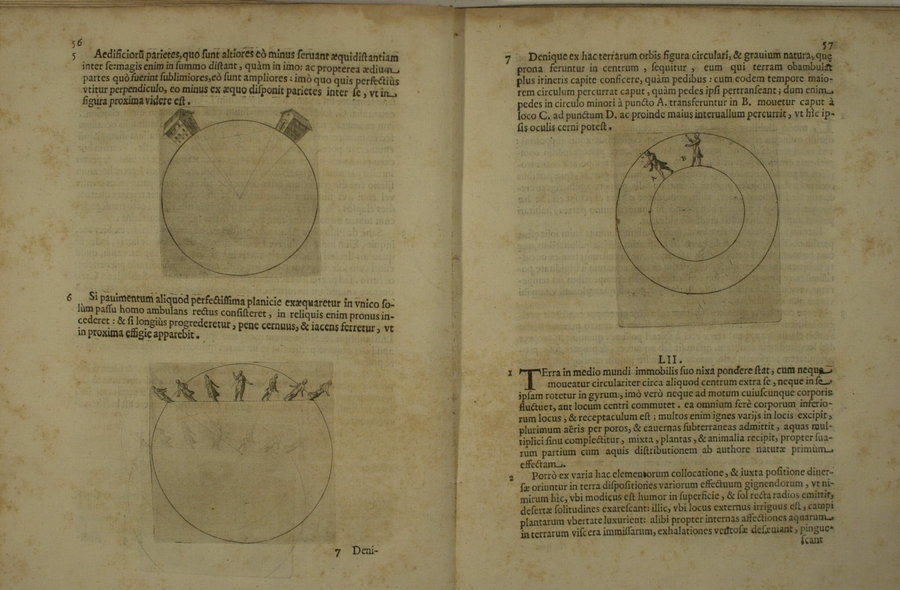 56
5 Aedificiorũ parietes, quo sunt altiores eò minus seruant æquidistantiam
inter se: magis enim in summo distant, quàm in imo: ac propterea ædium
partes quò fuerint sublimiores, eò sunt ampliores: imò quo quis perfectiùs
vtitur perpendiculo, eo minus ex æquo disponit parietes inter se, vt in
figura proxima videre est.
6 Si pauimentum aliquod perfectissima planicie exæquaretur in vnico so-
lùm passu homo ambulans rectus consisteret, in reliquis enim pronus in-
cederet: & si longiùs progrederetur, pene cernuus, & iacens ferretur, vt
in proxima effigie apparebit.
7 Deni-
57
7 Denique ex hac terrarum orbis figura circulari, & grauium natura, quę
prona feruntur in centrum, sequitur, eum qui terram obambulat
plus itineris capite conficere, quàm pedibus: cum eodem tempore maio-
rem circulum percurrat caput, quàm pedes ipsi pertranseant; dum enim
pedes in circulo minori à puncto A. transferuntur in B. mouetur caput à
loco C. ad punctum D. ac proinde maius interuallum percurrit, vt hic ip-
sis oculis cerni potest.
A
B
LII.
1 TErra in medio mundi immobilis suo nixa pondere stat, cum neque
moueatur circulariter circa aliquod centrum extra se, neque in se
ipsam rotetur in gyrum, imò verò neque ad motum cuiuscunque corporis
fluctuet, aut locum centri commutet. ea omnium ferè corporum inferio-
rum locus, & receptaculum est; multos enim ignes varijs in locis excipit,
plurimum aëris per poros, & cauernas subterraneas admittit, aquas mul-
tiplici sinu complectitur, mixta, plantas, & animalia recipit, propter sua-
rum partium cum aquis distributionem ab authore naturæ primùm
effectam.
2 Porrò ex varia hac elementorum collocatione, & iuxta positione diuer-
sæ oriuntur in terra dispositiones variorum effectuum gignendorum, vt ni-
mirum hic, vbi modicus est humor in superficie, & sol recta radios emittit,
desertæ solitudines exarescant: illic, vbi locus externus irriguus est, campi
plantarum vbertate luxurient: alibi propter internas affectiones aquarum
in terrarum viscera immissarum, exhalationes vẽtosæ desæuiant, pingue-
scant